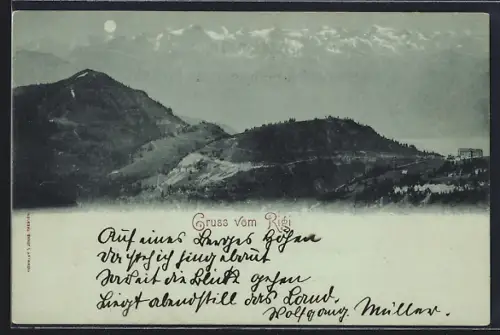 Gruss vom Rigi
Auf eines Berges Höhen
da steh ich hingebaut
Soweit die Blicke gehen
Liegt abendstill das Land.
Wolfgang Müller.